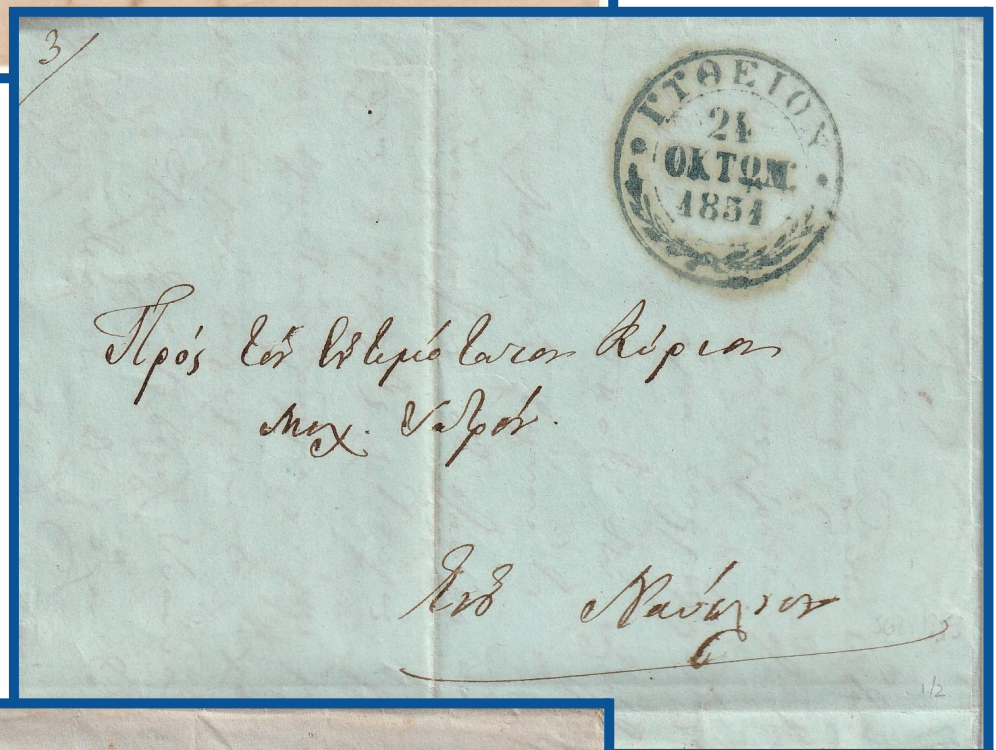 3/
ΓΥΘΕΙΟΝ
24
ΟΚΤΩΜ.
1851
Πρὸς τὸν Ἐντιμότατον Κύριον
Μιχ. Ἰατρόν.
Εἰς Ναύπλιον
1/2